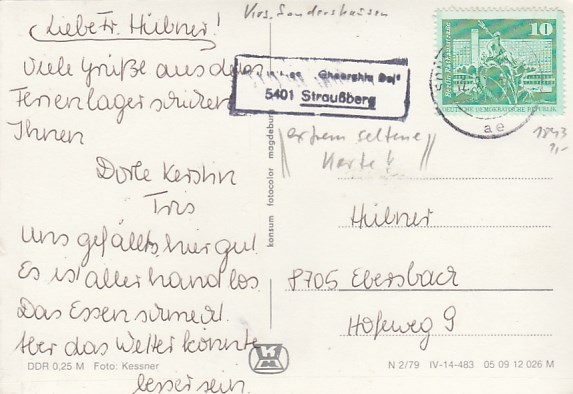 Liebe Fr. Hübner!
Viele Grüße aus dem
Ferienlager senden
Ihnen
Dorle Kerstin
Iris
Uns gefällts hier gut
Es ist allerhand los
Das Essen schmeckt.
Aber das Wetter könnte
besser sein.
DDR 0,25 M Foto: Kessner
konsum fotocolor magdeburg
Krs. Sondershausen
Gheorghiu Dej"
5401 Straußberg
10
DEUTSCHE DEMOKRATISCHE REPUBLIK
ae
extrem seltene
Karte!
1843
1,-
Hübner
8705 Ebersbach
Hofeweg 9
N 2/79 IV-14-483 05 09 12 026 M